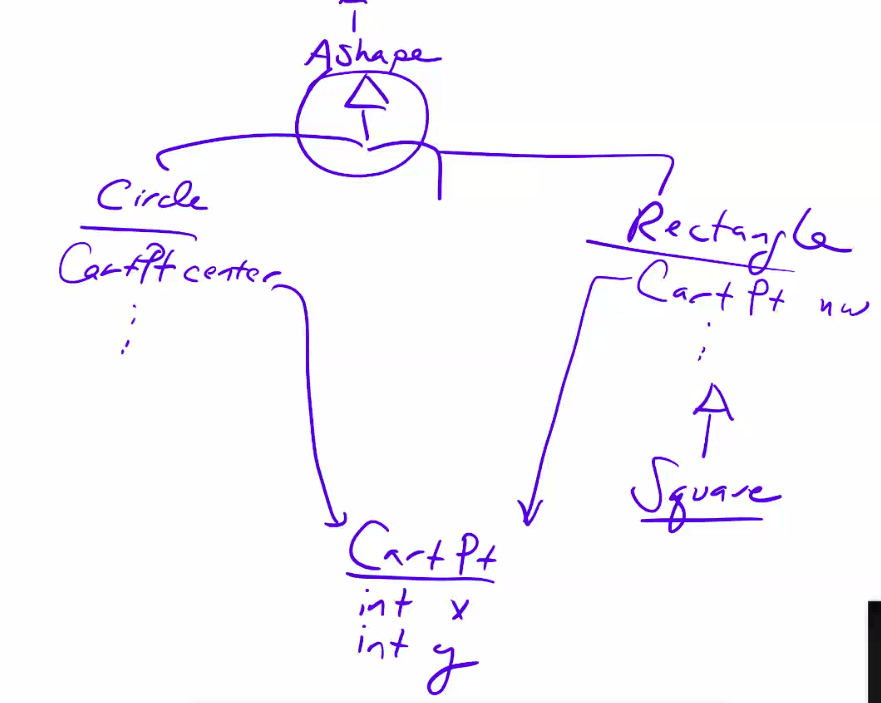 AShape
Circle
CartPt center
Rectangle
CartPt nw
Square
CartPt
int x
int y